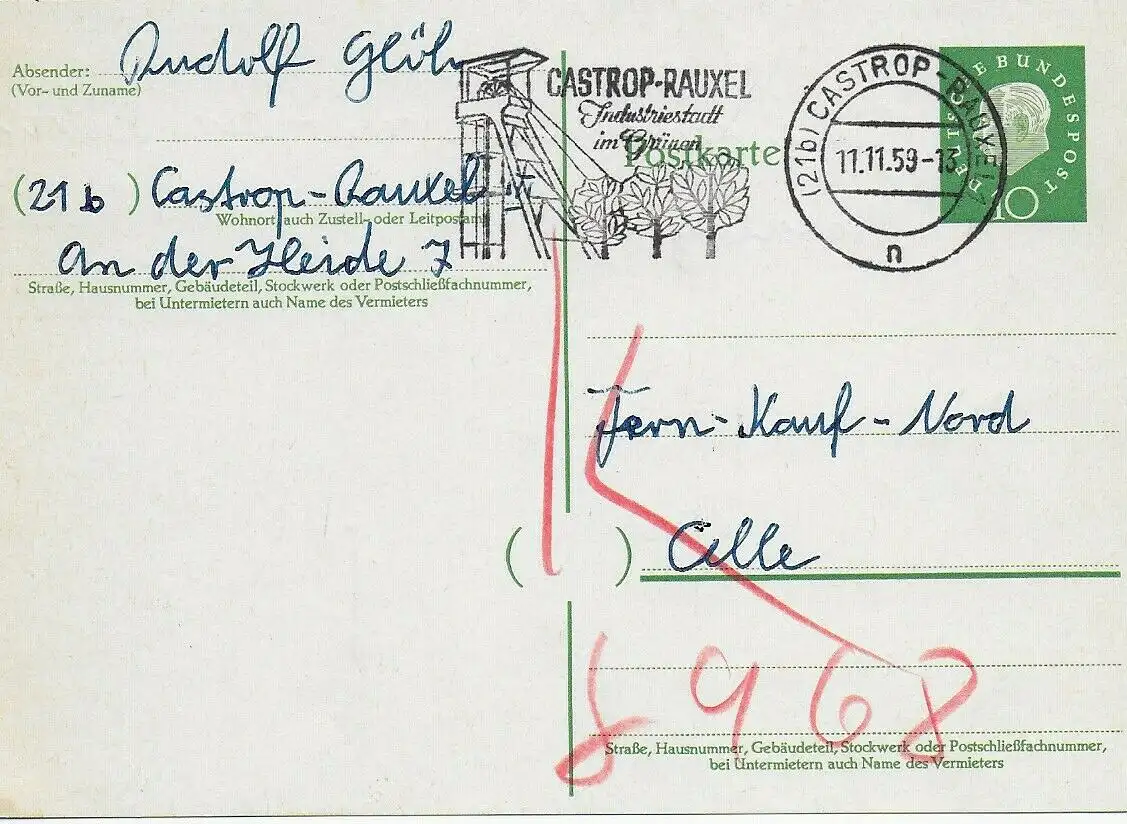 Absender:
(Vor- und Zuname)
Rudolf
(21b) Castrop-Rauxel
Wohnort, auch Zustell- oder Leitpostamt
An der Heide 7
Straße, Hausnummer, Gebäudeteil, Stockwerk oder Postschließfachnummer,
bei Untermietern auch Name des Vermieters
CASTROP-RAUXEL
Industriestadt
im Grünen
Postkarte
(21b) CASTROP-RAUXEL 1
11.11.59-13
n
DEUTSCHE BUNDESPOST
10
Fern-Kauf-Nord
( ) Celle
Straße, Hausnummer, Gebäudeteil, Stockwerk oder Postschließfachnummer,
bei Untermietern auch Name des Vermieters